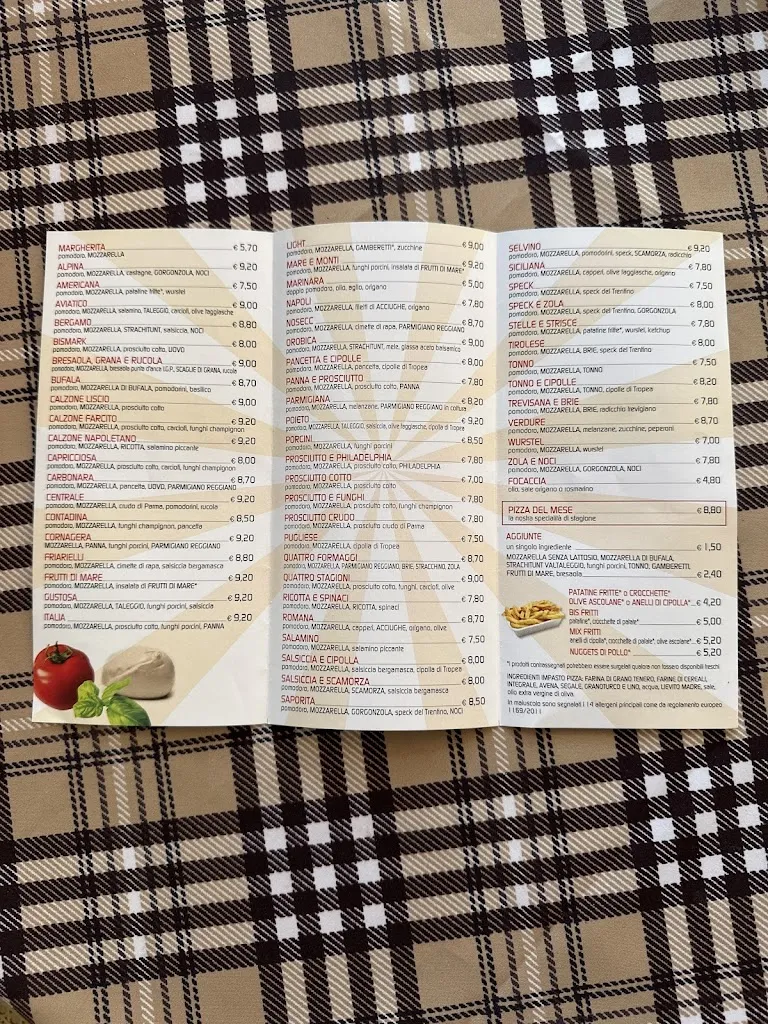 MARGHERITA € 5,70
pomodoro, MOZZARELLA
ALPINA € 9,20
pomodoro, MOZZARELLA, castagne, GORGONZOLA, NOCI
AMERICANA € 7,50
pomodoro, MOZZARELLA, patatine fritte*, wurstel
AVIATICO € 9,00
pomodoro, MOZZARELLA, salamino, TALEGGIO, carciofi, olive taggiasche
BERGAMO € 8,80
pomodoro, MOZZARELLA, STRACHITUNT, salsiccia, NOCI
BISMARK € 8,00
pomodoro, MOZZARELLA, prosciutto cotto, UOVO
BRESAOLA, GRANA E RUCOLA € 9,00
pomodoro, MOZZARELLA, bresaola punta d'anca I.G.P., SCAGLIE DI GRANA, rucola
BUFALA € 8,70
pomodoro, MOZZARELLA DI BUFALA, pomodorini, basilico
CALZONE LISCIO € 9,00
pomodoro, MOZZARELLA, prosciutto cotto
CALZONE FARCITO € 9,20
pomodoro, MOZZARELLA, prosciutto cotto, carciofi, funghi champignon
CALZONE NAPOLETANO € 9,20
pomodoro, MOZZARELLA, RICOTTA, salamino piccante
CAPRICCIOSA € 8,00
pomodoro, MOZZARELLA, prosciutto cotto, carciofi, funghi champignon
CARBONARA € 8,70
pomodoro, MOZZARELLA, pancetta, UOVO, PARMIGIANO REGGIANO
CENTRALE € 9,20
pomodoro, MOZZARELLA, crudo di Parma, pomodorini, rucola
CONTADINA € 8,50
pomodoro, MOZZARELLA, funghi champignon, pancetta
CORNAGERA € 9,20
pomodoro, MOZZARELLA, PANNA, funghi porcini, PARMIGIANO REGGIANO
FRIARIELLI € 8,80
pomodoro, MOZZARELLA, cimette di rapa, salsiccia bergamasca
FRUTTI DI MARE € 9,20
pomodoro, MOZZARELLA, insalata di FRUTTI DI MARE*
GUSTOSA € 9,20
pomodoro, MOZZARELLA, TALEGGIO, funghi porcini, salsiccia
ITALIA € 9,20
pomodoro, MOZZARELLA, prosciutto cotto, funghi porcini, PANNA
LIGHT € 9,00
pomodoro, MOZZARELLA, GAMBERETTI*, zucchine
MARE E MONTI € 9,20
pomodoro, MOZZARELLA, funghi porcini, insalata di FRUTTI DI MARE*
MARINARA € 5,00
doppio pomodoro, olio, aglio, origano
NAPOLI € 7,80
pomodoro, MOZZARELLA, filetti di ACCIUGHE, origano
NOSECC € 8,70
pomodoro, MOZZARELLA, cimette di rapa, PARMIGIANO REGGIANO
OROBICA € 9,00
pomodoro, MOZZARELLA, STRACHITUNT, mele, glassa aceto balsamico
PANCETTA E CIPOLLE € 8,00
pomodoro, MOZZARELLA, pancetta, cipolla di Tropea
PANNA E PROSCIUTTO € 7,80
pomodoro, MOZZARELLA, prosciutto cotto, PANNA
PARMIGIANA € 8,20
pomodoro, MOZZARELLA, melanzane, PARMIGIANO REGGIANO in cottura
POIETO € 9,20
pomodoro, MOZZARELLA, TALEGGIO, salsiccia, olive taggiasche, cipolla di Tropea
PORCINI € 8,50
pomodoro, MOZZARELLA, funghi porcini
PROSCIUTTO E PHILADELPHIA € 7,80
pomodoro, MOZZARELLA, prosciutto cotto, PHILADELPHIA
PROSCIUTTO COTTO € 7,00
pomodoro, MOZZARELLA, prosciutto cotto
PROSCIUTTO E FUNGHI € 7,80
pomodoro, MOZZARELLA, prosciutto cotto, funghi champignon
PROSCIUTTO CRUDO € 7,80
pomodoro, MOZZARELLA, prosciutto crudo di Parma
PUGLIESE € 7,50
pomodoro, MOZZARELLA, cipolla di Tropea
QUATTRO FORMAGGI € 8,70
pomodoro, MOZZARELLA, PARMIGIANO REGGIANO, BRIE, STRACCHINO, ZOLA
QUATTRO STAGIONI € 9,00
pomodoro, MOZZARELLA, prosciutto cotto, funghi, carciofi, olive
RICOTTA E SPINACI € 7,80
pomodoro, MOZZARELLA, RICOTTA, spinaci
ROMANA € 8,70
pomodoro, MOZZARELLA, capperi, ACCIUGHE, origano, olive
SALAMINO € 7,50
pomodoro, MOZZARELLA, salamino piccante
SALSICCIA E CIPOLLA € 8,00
pomodoro, MOZZARELLA, salsiccia bergamasca, cipolla di Tropea
SALSICCIA E SCAMORZA € 8,00
pomodoro, MOZZARELLA, SCAMORZA, salsiccia bergamasca
SAPORITA € 8,50
pomodoro, MOZZARELLA, GORGONZOLA, speck del Trentino, NOCI
SELVINO € 9,20
pomodoro, MOZZARELLA, pomodorini, speck, SCAMORZA, radicchio
SICILIANA € 7,80
pomodoro, MOZZARELLA, capperi, olive taggiasche, origano
SPECK € 7,50
pomodoro, MOZZARELLA, speck del Trentino
SPECK E ZOLA € 8,00
pomodoro, MOZZARELLA, speck del Trentino, GORGONZOLA
STELLE E STRISCE € 7,80
pomodoro, MOZZARELLA, patatine fritte*, wurstel, ketchup
TIROLESE € 8,00
pomodoro, MOZZARELLA, BRIE, speck del Trentino
TONNO € 7,50
pomodoro, MOZZARELLA, TONNO
TONNO E CIPOLLE € 8,20
pomodoro, MOZZARELLA, TONNO, cipolla di Tropea
TREVISANA E BRIE € 7,80
pomodoro, MOZZARELLA, BRIE, radicchio trevigiano
VERDURE € 8,70
pomodoro, MOZZARELLA, melanzane, zucchine, peperoni
WURSTEL € 7,00
pomodoro, MOZZARELLA, wurstel
ZOLA E NOCI € 7,80
pomodoro, MOZZARELLA, GORGONZOLA, NOCI
FOCACCIA € 4,80
olio, sale origano o rosmarino
PIZZA DEL MESE € 8,80
la nostra specialità di stagione
AGGIUNTE
un singolo ingrediente € 1,50
MOZZARELLA SENZA LATTOSIO, MOZZARELLA DI BUFALA,
STRACHITUNT VALTALEGGIO, funghi porcini, TONNO, GAMBERETTI,
FRUTTI DI MARE, bresaola € 2,40
PATATINE FRITTE* o CROCCHETTE*
OLIVE ASCOLANE* o ANELLI DI CIPOLLA* € 4,20
BIS FRITTI
patatine*, crocchette di patate* € 5,00
MIX FRITTI
anelli di cipolla*, crocchette di patate*, olive ascolane* € 5,20
NUGGETS DI POLLO* € 5,20
*I prodotti contrassegnati potrebbero essere surgelati qualora non fossero disponibili freschi.
INGREDIENTI IMPASTO PIZZA: FARINA DI GRANO TENERO, FARINE DI CEREALI,
INTEGRALE, AVENA, SEGALE, GRANOTURCO E LINO, acqua, LIEVITO MADRE, sale,
olio extra vergine di oliva.
In maiuscolo sono segnalati i 14 allergeni principali come da regolamento europeo
1169/2011